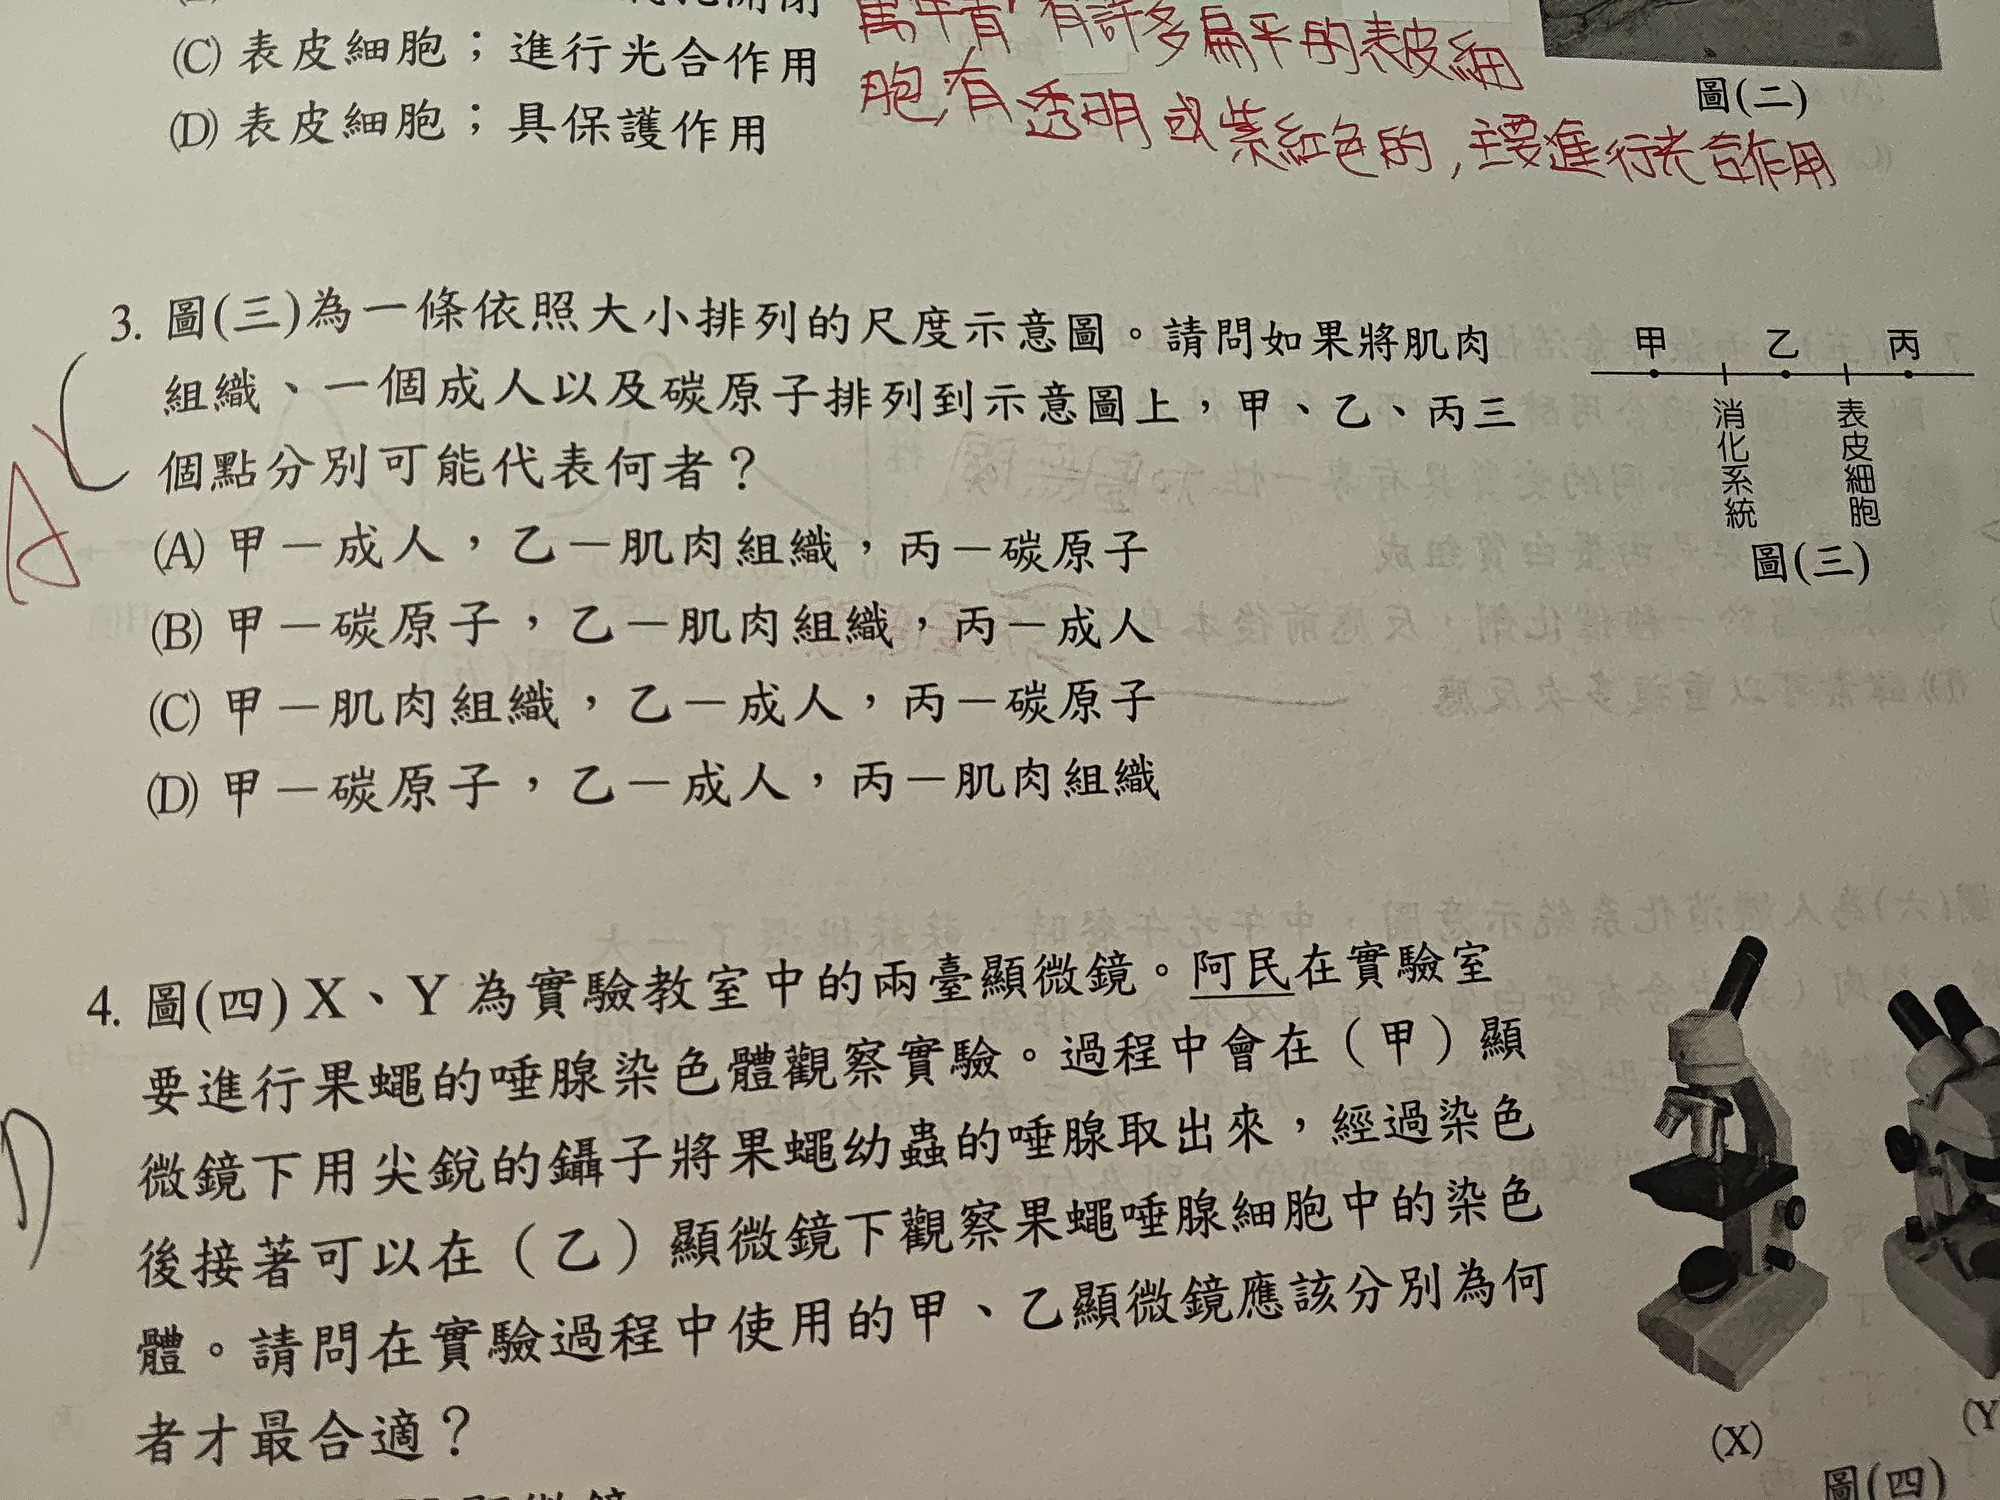 (C) 表皮細胞；進行光合作用
(D) 表皮細胞；具保護作用
萬年青 有許多扁平的表皮細
胞,有透明或紫紅色的,主要進行光合作用
圖(二)
3. 圖(三)為一條依照大小排列的尺度示意圖。請問如果將肌肉
組織、一個成人以及碳原子排列到示意圖上，甲、乙、丙三
個點分別可能代表何者？
(A) 甲－成人，乙－肌肉組織，丙－碳原子
(B) 甲－碳原子，乙－肌肉組織，丙－成人
(C) 甲－肌肉組織，乙－成人，丙－碳原子
(D) 甲－碳原子，乙－成人，丙－肌肉組織
A
甲 乙 丙
消化系統
表皮細胞
圖(三)
4. 圖(四) X、Y 為實驗教室中的兩臺顯微鏡。阿民在實驗室
要進行果蠅的唾腺染色體觀察實驗。過程中會在（甲）顯
微鏡下用尖銳的鑷子將果蠅幼蟲的唾腺取出來，經過染色
後接著可以在（乙）顯微鏡下觀察果蠅唾腺細胞中的染色
體。請問在實驗過程中使用的甲、乙顯微鏡應該分別為何
者才最合適？
D
(X)
(Y
圖(四)